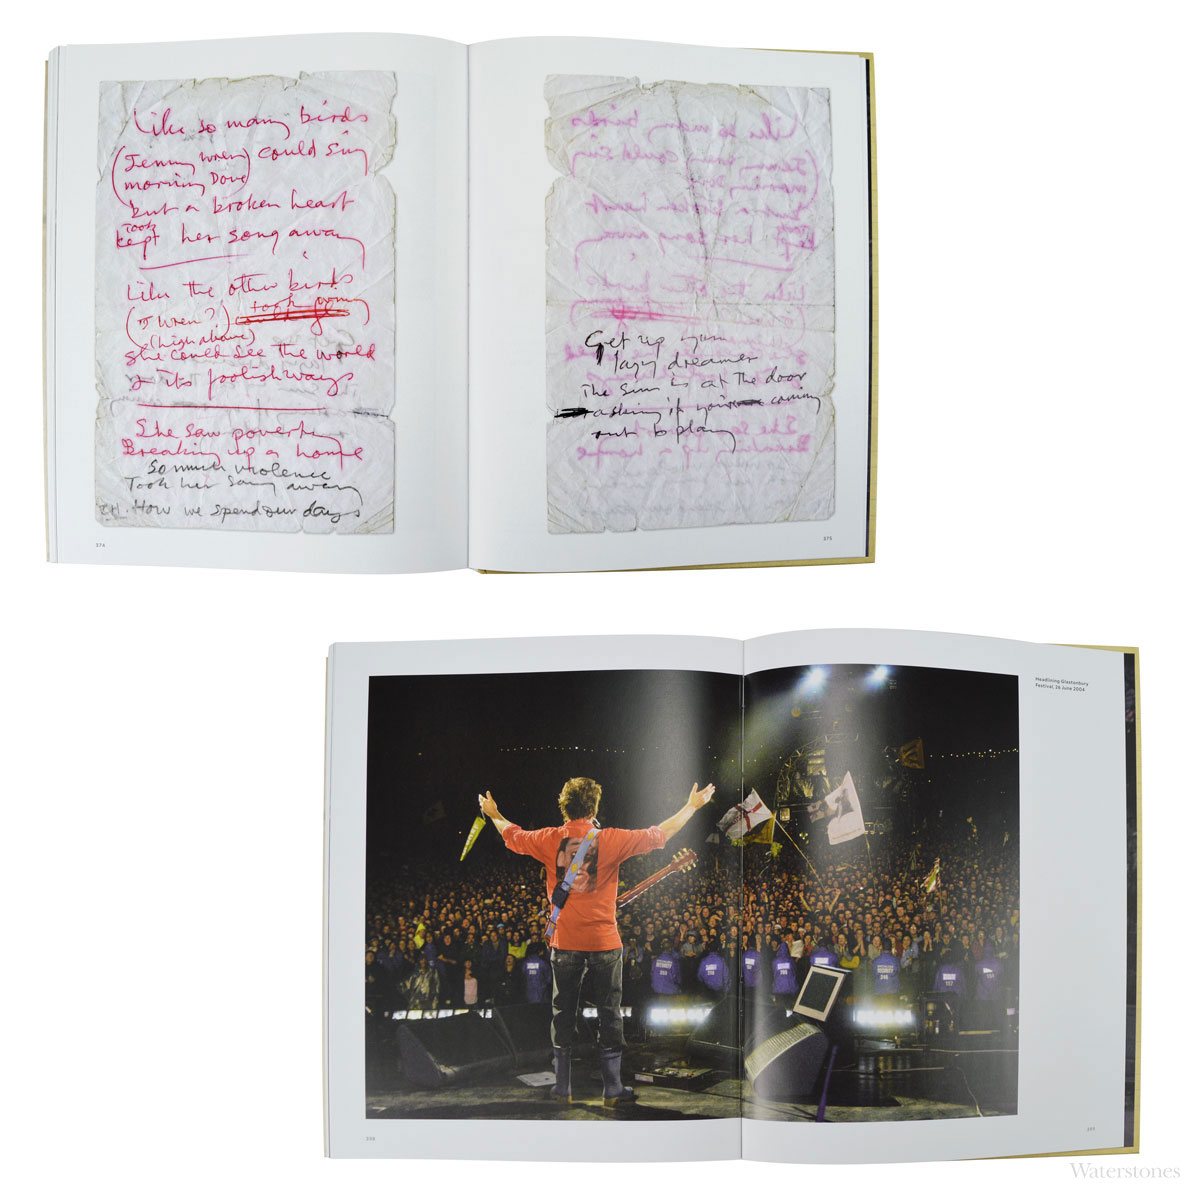 Like so many birds
(Jenny Wren) could sing
(morning Dove)
but a broken heart
Took
kept her song away
Like the other birds
(J Wren?) took
(high above)
She could see the world
& its foolish ways
She saw poverty
Breaking up a home
So much violence
Took her song away
How we spend our days
374
Get up you
lazy dreamer
The Sun is at the door
asking if you're coming
out to play
375
Headlining Glastonbury
Festival, 26 June 2004
338
Waterstones